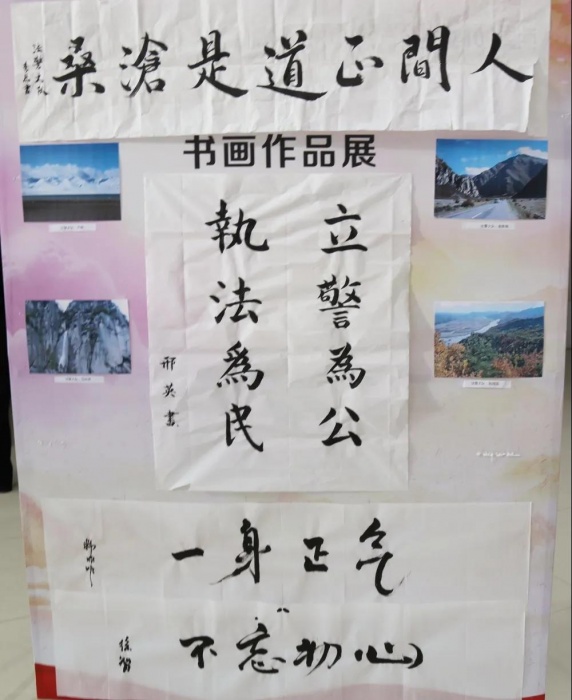 人間正道是滄桑
法警大队
书画作品展
立警為公
執法爲民
邢英書
一身正气
不忘初心
徐智